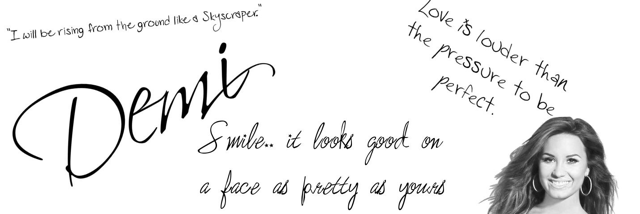 "I will be rising from the ground like a Skyscraper."
Love is louder than
the pressure to be
perfect.
Demi
Smile.. it looks good on
a face as pretty as yours